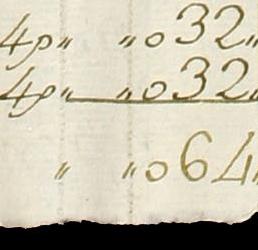 4p〃 〃032〃
4p〃 〃032〃
〃 〃064〃